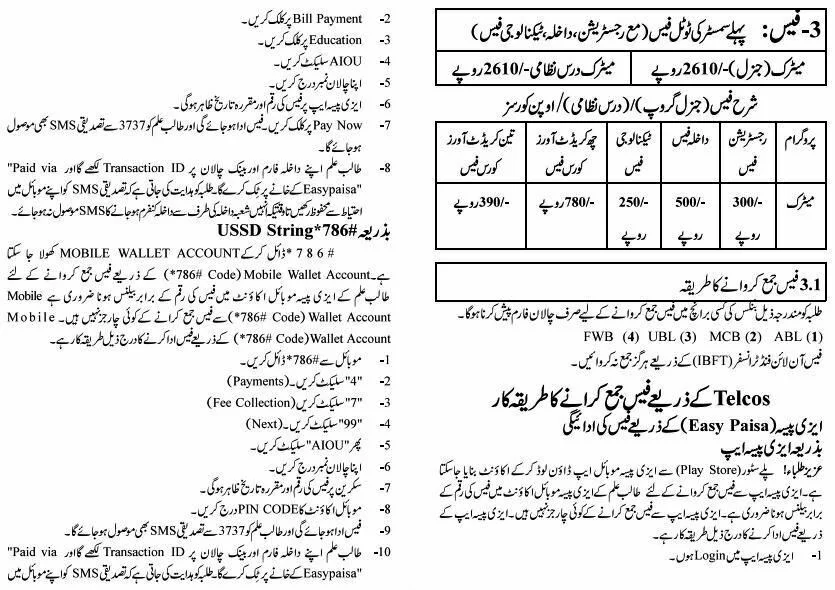 3- فیس: پہلے سمسٹر کی ٹوٹل فیس (مع رجسٹریشن، داخلہ، ٹیکنالوجی فیس)
میٹرک (جنرل) -/2610 روپے
میٹرک درس نظامی -/2610 روپے
شرح فیس (جنرل گروپ)/(درس نظامی)/اوپن کورسز
پروگرام رجسٹریشن فیس داخلہ فیس ٹیکنالوجی فیس چھ کریڈٹ آورز کورس فیس تین کریڈٹ آورز کورس فیس
میٹرک -/300 روپے -/500 روپے -/250 روپے -/780 روپے -/390 روپے
3.1 فیس جمع کروانے کا طریقہ
طلبہ کو مندرجہ ذیل بنکس کی کسی برانچ میں فیس جمع کروانے کے لیے صرف چالان فارم پیش کرنا ہوگا۔
(1) ABL (2) MCB (3) UBL (4) FWB
فیس آن لائن فنڈ ٹرانسفر (IBFT) کے ذریعے ہرگز جمع نہ کروائیں۔
Telcos کے ذریعے فیس جمع کرانے کا طریقہ کار
ایزی پیسہ (Easy Paisa) کے ذریعے فیس کی ادائیگی
بذریعہ ایزی پیسہ ایپ
عزیز طلباء! پلے سٹور (Play Store) سے ایزی پیسہ موبائل ایپ ڈاؤن لوڈ کر کے اکاؤنٹ بنایا جا سکتا
ہے۔ ایزی پیسہ ایپ سے فیس جمع کروانے کے لئے طالب علم کے ایزی پیسہ موبائل اکاؤنٹ میں فیس کی رقم کے
برابر بیلنس ہونا ضروری ہے۔ ایزی پیسہ ایپ سے فیس جمع کرانے کے کوئی چارجز نہیں ہیں۔ ایزی پیسہ ایپ کے
ذریعے فیس ادا کرنے کا درج ذیل طریقہ کار ہے۔
1- ایزی پیسہ ایپ میں Login ہوں۔
2- Bill Payment پر کلک کریں۔
3- Education پر کلک کریں۔
4- AIOU سلیکٹ کریں۔
5- اپنا چالان نمبر درج کریں۔
6- ایزی پیسہ ایپ پر فیس کی رقم اور مقررہ تاریخ ظاہر ہوگی۔
7- Pay Now پر کلک کریں۔ فیس ادا ہو جائے گی اور طالب علم کو 3737 سے تصدیقی SMS بھی موصول
ہو جائے گا۔
8- طالب علم اپنے داخلہ فارم اور بینک چالان پر Transaction ID لکھے گا اور "Paid via
Easypaisa" کے خانے پر ٹک کرے گا۔ طلبہ کو ہدایت کی جاتی ہے کہ تصدیقی SMS کو اپنے موبائل میں
احتیاط سے محفوظ رکھیں تاوقتیکہ اُنہیں شعبہ داخلہ کی طرف سے داخلہ کنفرم ہو جانے کا SMS موصول نہ ہو جائے۔
بذریعہ USSD String*786#
#786* ڈائل کر کے MOBILE WALLET ACCOUNT کھولا جا سکتا
ہے۔ Mobile Wallet Account (*786# Code) کے ذریعے فیس جمع کروانے کے لئے
طالب علم کے ایزی پیسہ موبائل اکاؤنٹ میں فیس کی رقم کے برابر بیلنس ہونا ضروری ہے Mobile
Wallet Account (*786# Code) سے فیس جمع کرانے کے کوئی چارجز نہیں ہیں۔ Mobile
Wallet Account (*786# Code) کے ذریعے فیس ادا کرنے کا درج ذیل طریقہ کار ہے۔
1- موبائل سے #786* ڈائل کریں۔
2- "4" سلیکٹ کریں۔ (Payments)
3- "7" سلیکٹ کریں۔ (Fee Collection)
4- "99" سلیکٹ کریں۔ (Next)
5- پھر "AIOU" سلیکٹ کریں۔
6- اپنا چالان نمبر درج کریں۔
7- سکرین پر فیس کی رقم اور مقررہ تاریخ ظاہر ہوگی۔
8- موبائل اکاؤنٹ کا PIN CODE درج کریں۔
9- فیس ادا ہو جائے گی اور طالب علم کو 3737 سے تصدیقی SMS بھی موصول ہو جائے گا۔
10- طالب علم اپنے داخلہ فارم اور بینک چالان پر Transaction ID لکھے گا اور "Paid via
Easypaisa" کے خانے پر ٹک کرے گا۔ طلبہ کو ہدایت کی جاتی ہے کہ تصدیقی SMS کو اپنے موبائل میں